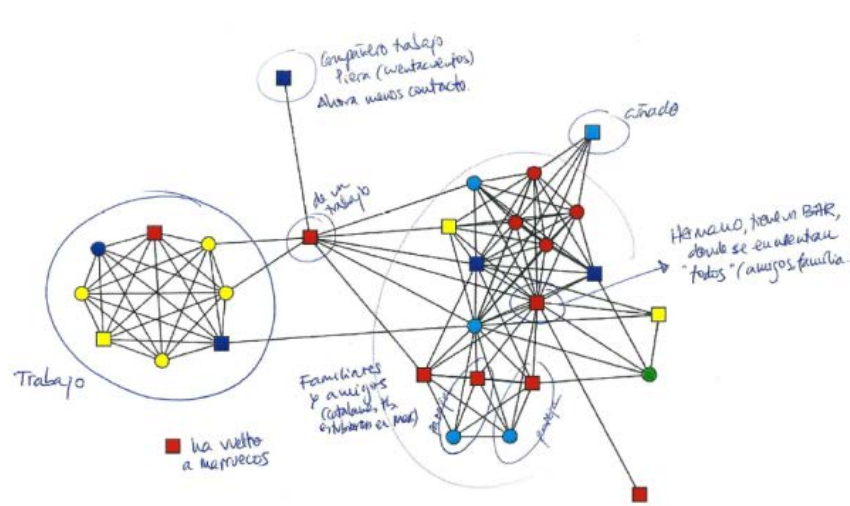 Compañero trabajo
Piera (cuentacuentos)
Ahora menos contacto.
cuñado
de un
trabajo
Hermano, tiene un BAR,
donde se encuentran
"todos" (amigos, familia.
Trabajo
Familiares
y amigos
(catalanes
estuvieron en
pareja
pareja
ha vuelto
a marruecos